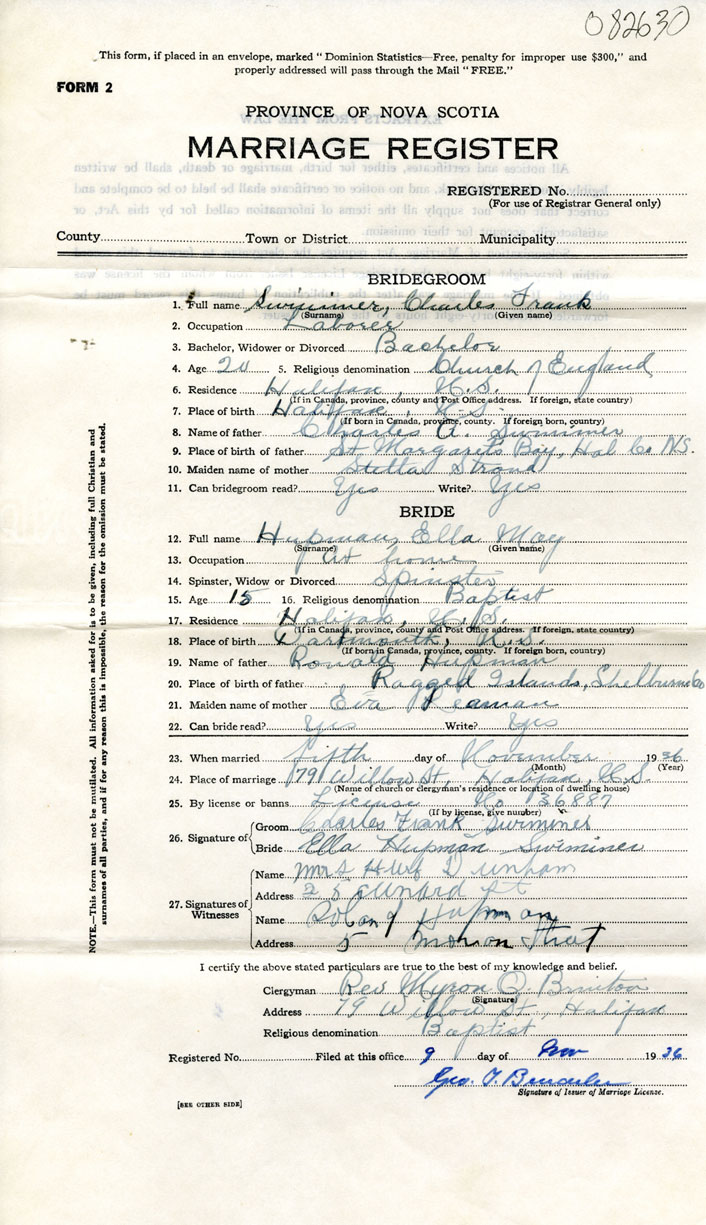 082630
This form, if placed in an envelope, marked "Dominion Statistics—Free, penalty for improper use $300," and
properly addressed will pass through the Mail "FREE."
FORM 2
PROVINCE OF NOVA SCOTIA
MARRIAGE REGISTER
REGISTERED No.
(For use of Registrar General only)
County Town or District Municipality
BRIDEGROOM
1. Full name Swiminer, Charles Frank
(Surname) (Given name)
2. Occupation Laborer
3. Bachelor, Widower or Divorced Bachelor
4. Age 20 5. Religious denomination Church of England
6. Residence Halifax, N.S.
(If in Canada, province, county and Post Office address. If foreign, state country)
7. Place of birth Halifax, N.S.
(If born in Canada, province, county. If foreign born, country)
8. Name of father Charles A. Swiminer
9. Place of birth of father St Margarets Bay, Hal Co NS.
10. Maiden name of mother Stella
11. Can bridegroom read? Yes Write? Yes
BRIDE
12. Full name Hupman, Ella May
(Surname) (Given name)
13. Occupation At home
14. Spinster, Widow or Divorced Spinster
15. Age 15 16. Religious denomination Baptist
17. Residence Halifax, N.S.
(If in Canada, province, county and Post Office address. If foreign, state country)
18. Place of birth Dartmouth, N.S.
(If born in Canada, province, county. If foreign born, country)
19. Name of father Ronald Hupman
20. Place of birth of father Ragged Islands, Shelburne Co
21. Maiden name of mother Eva Leaman
22. Can bride read? Yes Write? Yes
23. When married Fifth day of November 1936
(Month) (Year)
24. Place of marriage 79 Willow St, Halifax, N.S.
(Name of church or clergyman's residence or location of dwelling house)
25. By license or banns License No 136887
(If by license, give number)
26. Signature of Groom Charles Frank Swiminer
Bride Ella Hupman Swiminer
27. Signatures of Witnesses Name Mrs Dunham
Address 25 Cunard St
Name Hupman
Address 5 Street
I certify the above stated particulars are true to the best of my knowledge and belief.
Clergyman Rev Myron O. Brinton
(Signature)
Address 79 Willow St, Halifax
Religious denomination Baptist
Registered No. Filed at this office 9 day of Nov 1936
Geo. T.
Signature of Issuer of Marriage License.
[SEE OTHER SIDE]
NOTE.—This form must not be mutilated. All information asked for is to be given, including full Christian and
surnames of all parties, and if for any reason this is impossible, the reason for the omission must be stated.